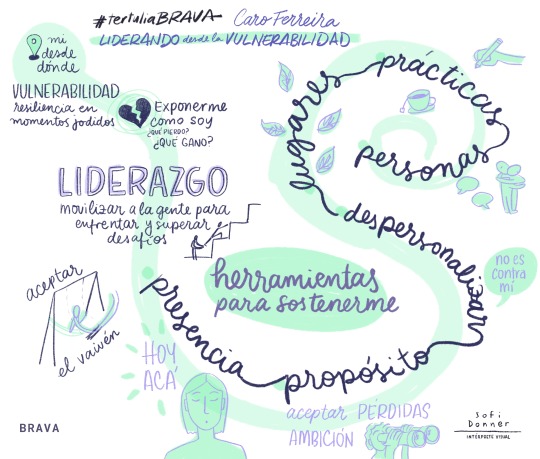 #tertuliaBRAVA Caro Ferreira
LIDERANDO desde la VULNERABILIDAD
mi
desde
dónde
VULNERABILIDAD
resiliencia en
momentos jodidos
Exponerme
como soy
¿QUÉ PIERDO?
¿QUÉ GANO?
LIDERAZGO
movilizar a la gente para
enfrentar y superar
desafíos
aceptar
el vaivén
herramientas
para sostenerme
presencia
propósito
despersonalizar
lugares
prácticas
personas
no es
contra
mí
HOY
ACÁ
aceptar PÉRDIDAS
AMBICIÓN
BRAVA
Sofi
Donner
INTÉRPRETE VISUAL